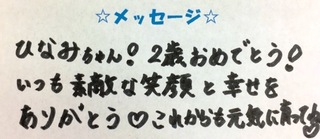 ☆メッセージ☆
ひなみちゃん!2歳おめでとう!
いつも素敵な笑顔と幸せを
ありがとう♡これからも元気に育ってね